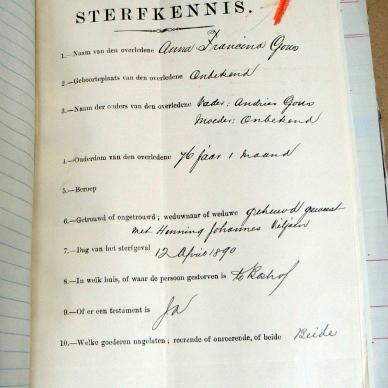 STERFKENNIS.
1.—Naam van den overledene Anna Francina Gous
2.—Geboorteplaats van den overledene Onbekend
3.—Naam der ouders van den overledene Vader: Andries Gous
Moeder: Onbekend
4.—Ouderdom van den overledene 76 jaar 1 maand
5.—Beroep
6.—Getrouwd of ongetrouwd; weduwnaar of weduwe gehuwd geweest
met Henning Johannes Viljoen
7.—Dag van het sterfgeval 12 April 1890
8.—In welk huis, of waar de persoon gestorven is te Boshof
9.—Of er een testament is Ja
10.—Welke goederen nagelaten; roerende of onroerende, of beide Beide